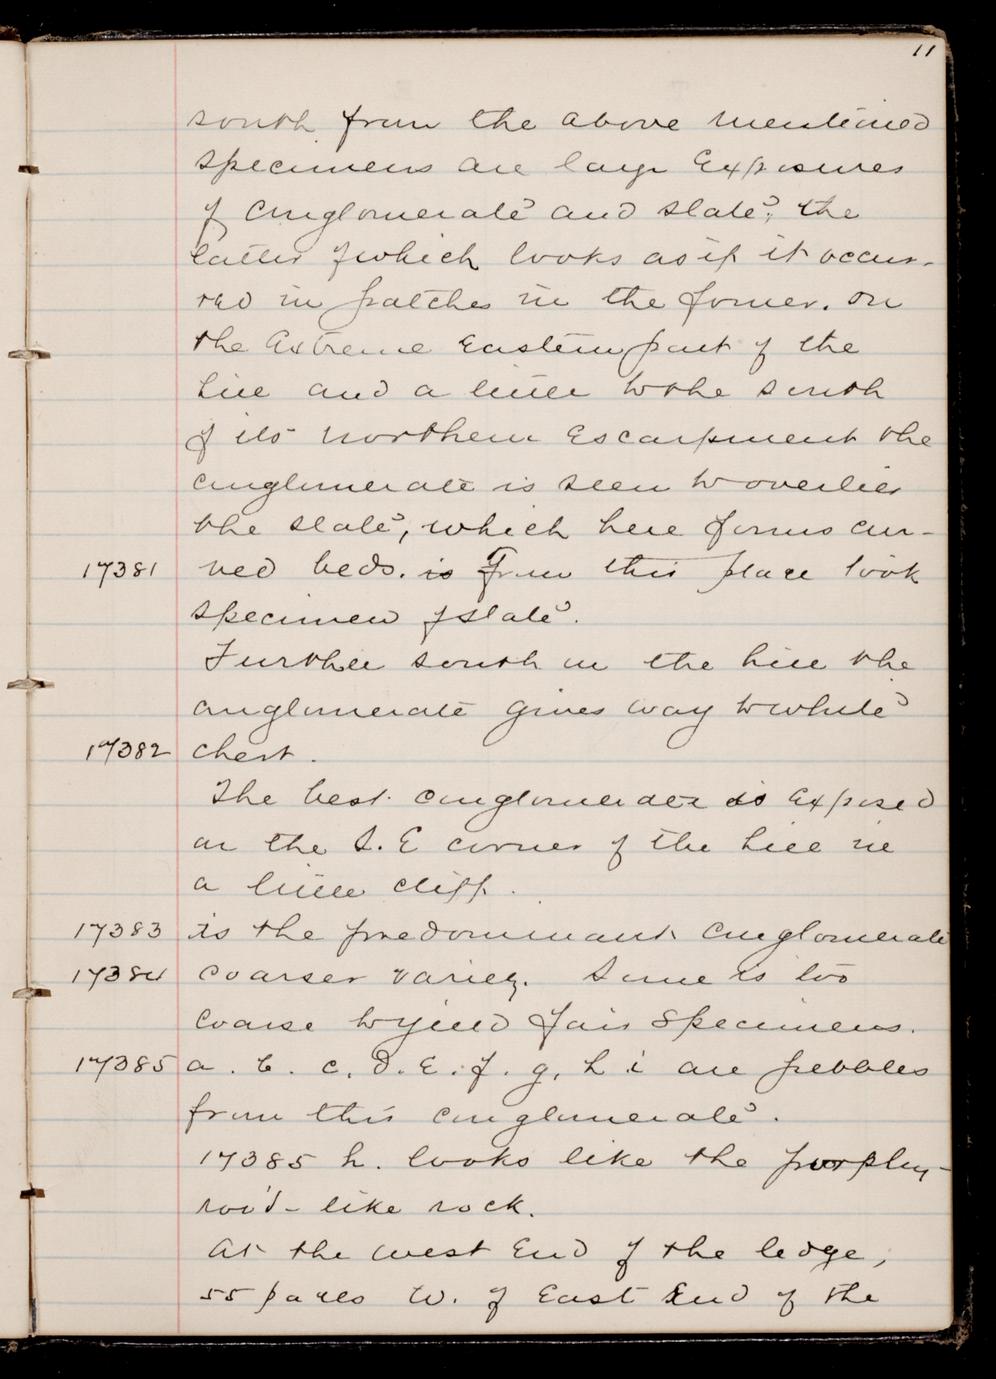 11
south from the above mentioned
specimens are large Exposures
of conglomerate and slate, the
latter of which looks as if it occur-
red in patches in the former. On
the Extreme Eastern part of the
hill and a little to the south
of its northern Escarpment the
conglomerate is seen to overlie
the slate, which here forms cur-
17381 ved beds. is From this place took
specimen of slate.
Further south on the hill the
conglomerate gives way to white
17382 chert.
The best conglomerate is Exposed
on the S. E corner of the hill in
a little cliff.
17383 is the predominant conglomerate
17384 coarser variety. Some is too
coarse to yield fair specimens.
17385 a. b. c. d. E. f. g. h i are pebbles
from this conglomerate.
17385 h. looks like the porphy-
roid-like rock.
At the west End of the ledge,
55 paces W. of East End of the